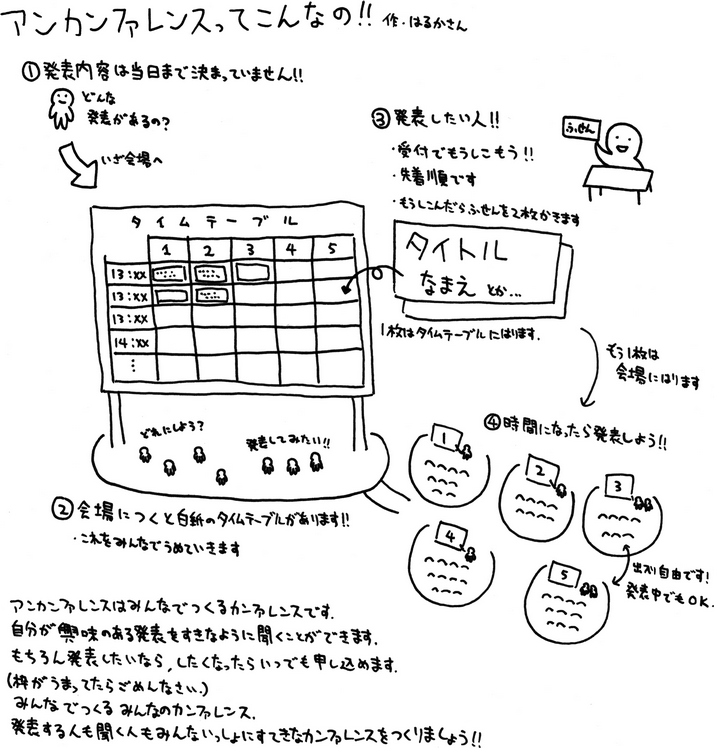 アンカンファレンスってこんなの!! 作・はるかさん
①発表内容は当日まで決まっていません!!
どんな
発表があるの?
いざ会場へ
タイムテーブル
1 2 3 4 5
13:xx
13:xx
13:xx
14:xx
⋮
どれにしよう?
発表してみたい!!
②会場につくと白紙のタイムテーブルがあります!!
・これをみんなでうめていきます
③発表したい人!!
・受付でもうしこもう!!
・先着順です
・もうしこんだらふせんを2枚かきます
ふせん
タイトル
なまえ とか...
1枚はタイムテーブルにはります.
もう1枚は
会場にはります
④時間になったら発表しよう!!
1
2
3
4
5
出入り自由です!
発表中でもOK.
アンカンファレンスはみんなでつくるカンファレンスです.
自分が興味のある発表をすきなように聞くことができます.
もちろん発表したいなら,したくなったらいつでも申し込めます.
(枠がうまってたらごめんなさい.)
みんなでつくるみんなのカンファレンス.
発表する人も聞く人もみんないっしょにすてきなカンファレンスをつくりましょう!!